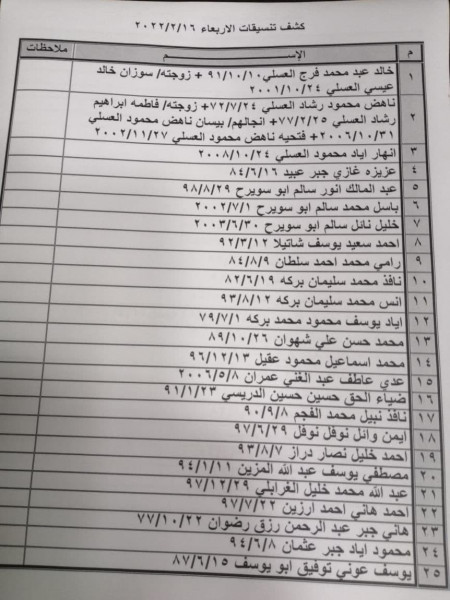 كشف تنسيقات الاربعاء ٢٠٢٢/٢/١٦
م الإســـــم ملاحظات
١ خالد عبد محمد فرج العسلي ٩١/١٠/١٠ + زوجته/ سوزان خالد
عيسي العسلي ٢٠٠١/١٠/٢٤
٢ ناهض محمود رشاد العسلي ٧٢/٧/٢٤+ زوجته/ فاطمه ابراهيم
رشاد العسلي ٧٧/٢/٢٥+ انجالهم/ بيسان ناهض محمود العسلي
٢٠٠٦/١٠/٣١+ فتحيه ناهض محمود العسلي ٢٠٠٢/١١/٢٧
٣ انهار اياد محمود العسلي ٢٠٠٨/١٠/٢٤
٤ عزيزه غازي جبر عبيد ٨٤/٦/١٦
٥ عبد المالك انور سالم ابو سويرح ٩٨/٨/٢٩
٦ باسل محمد سالم ابو سويرح ٢٠٠٢/٧/١
٧ خليل نائل سالم ابو سويرح ٢٠٠٣/٦/٣٠
٨ احمد سعيد يوسف شاتيلا ٩٢/٣/١٢
٩ رامي محمد احمد سلطان ٨٤/٨/٩
١٠ نافذ محمد سليمان بركه ٨٢/٦/١٩
١١ انس محمد سليمان بركه ٩٣/٨/١٢
١٢ اياد يوسف محمود محمد بركه ٧٩/٧/١
١٣ محمد حسن علي شهوان ٨٩/١٠/٢٦
١٤ محمد اسماعيل محمود عقيل ٩٦/١٢/١٣
١٥ عدي عاطف عبد الغني عمران ٢٠٠٦/٥/٨
١٦ ضياء الحق حسين حسين الدريسي ٩١/١/٢٣
١٧ نافذ نبيل محمد الفجم ٩٠/٩/٨
١٨ ايمن وائل نوفل نوفل ٩٧/٦/٢٩
١٩ احمد خليل نصار دراز ٩٣/٨/٧
٢٠ مصطفي يوسف عبد الله المزين ٩٤/١/١١
٢١ عبد الله محمد خليل الغرابلي ٩٧/١٢/٢٩
٢٢ احمد هاني احمد ارزين ٩٧/٧/٢٢
٢٣ هاني جبر عبد الرحمن رزق رضوان ٧٧/١٠/٢٢
٢٤ محمود اياد جبر عثمان ٩٤/٦/٨
٢٥ يوسف عوني توفيق ابو يوسف ٨٧/٦/١٥